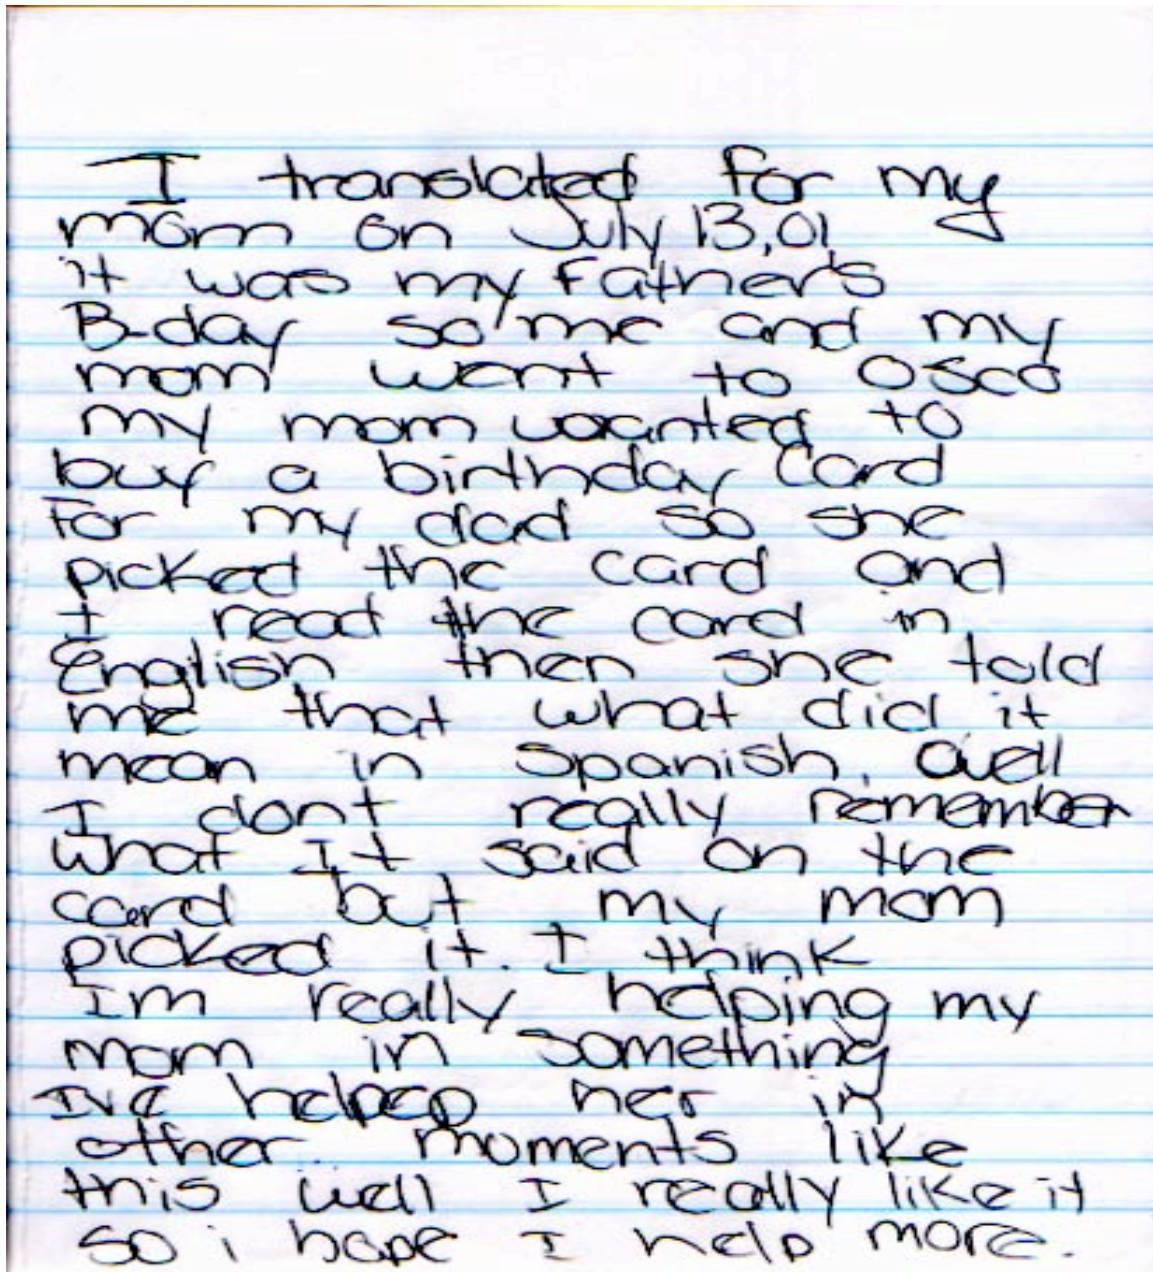 I translated for my
mom on July 13,01
it was my Father's
B-day so me and my
mom went to Osco
my mom wanted to
buy a birthday Card
For my dad so she
picked the card and
I read the card in
English then she told
me that what did it
mean in Spanish, Well
I dont really remember
what It said on the
card but my mom
picked it. I think
Im really helping my
mom in something
Ive helped her in
other moments like
this well I really like it
so i hope I help more.